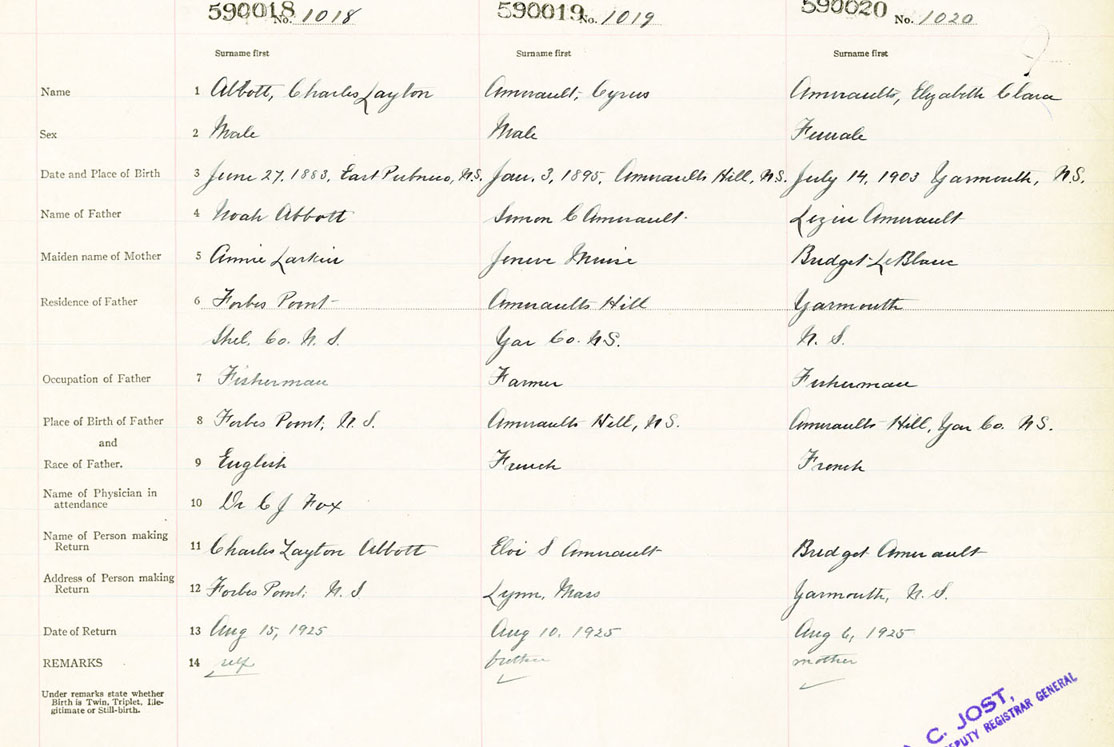 590018 No. 1018 590019 No. 1019 590020 No. 1020
Surname first Surname first Surname first
Name 1 Abbott, Charles Layton Amirault, Cyrus Amiraults, Elizabeth Clara
Sex 2 Male Male Female
Date and Place of Birth 3 June 27, 1883, East Pubnico, N.S. Jan. 3, 1895, Amiraults Hill, N.S. July 14, 1903 Yarmouth, N.S.
Name of Father 4 Noah Abbott Simon C Amirault Amirault
Maiden name of Mother 5 Annie Larkin Muise Bridget LeBlanc
Residence of Father 6 Forbes Point Amiraults Hill Yarmouth
Shel. Co. N. S. Yar Co. N.S. N. S.
Occupation of Father 7 Fisherman Farmer Fisherman
Place of Birth of Father 8 Forbes Point, N. S. Amiraults Hill, N.S. Amiraults Hill, Yar Co. N.S.
and
Race of Father. 9 English French French
Name of Physician in
attendance 10 Dr C J Fox
Name of Person making
Return 11 Charles Layton Abbott Eloi S Amirault Bridget Amirault
Address of Person making
Return 12 Forbes Point, N. S Lynn, Mass Yarmouth, N. S.
Date of Return 13 Aug 15, 1925 Aug 10, 1925 Aug 6, 1925
REMARKS 14 self brother mother
Under remarks state whether
Birth is Twin, Triplet, Ille-
gitimate or Still-birth.
C. JOST,
DEPUTY REGISTRAR GENERAL